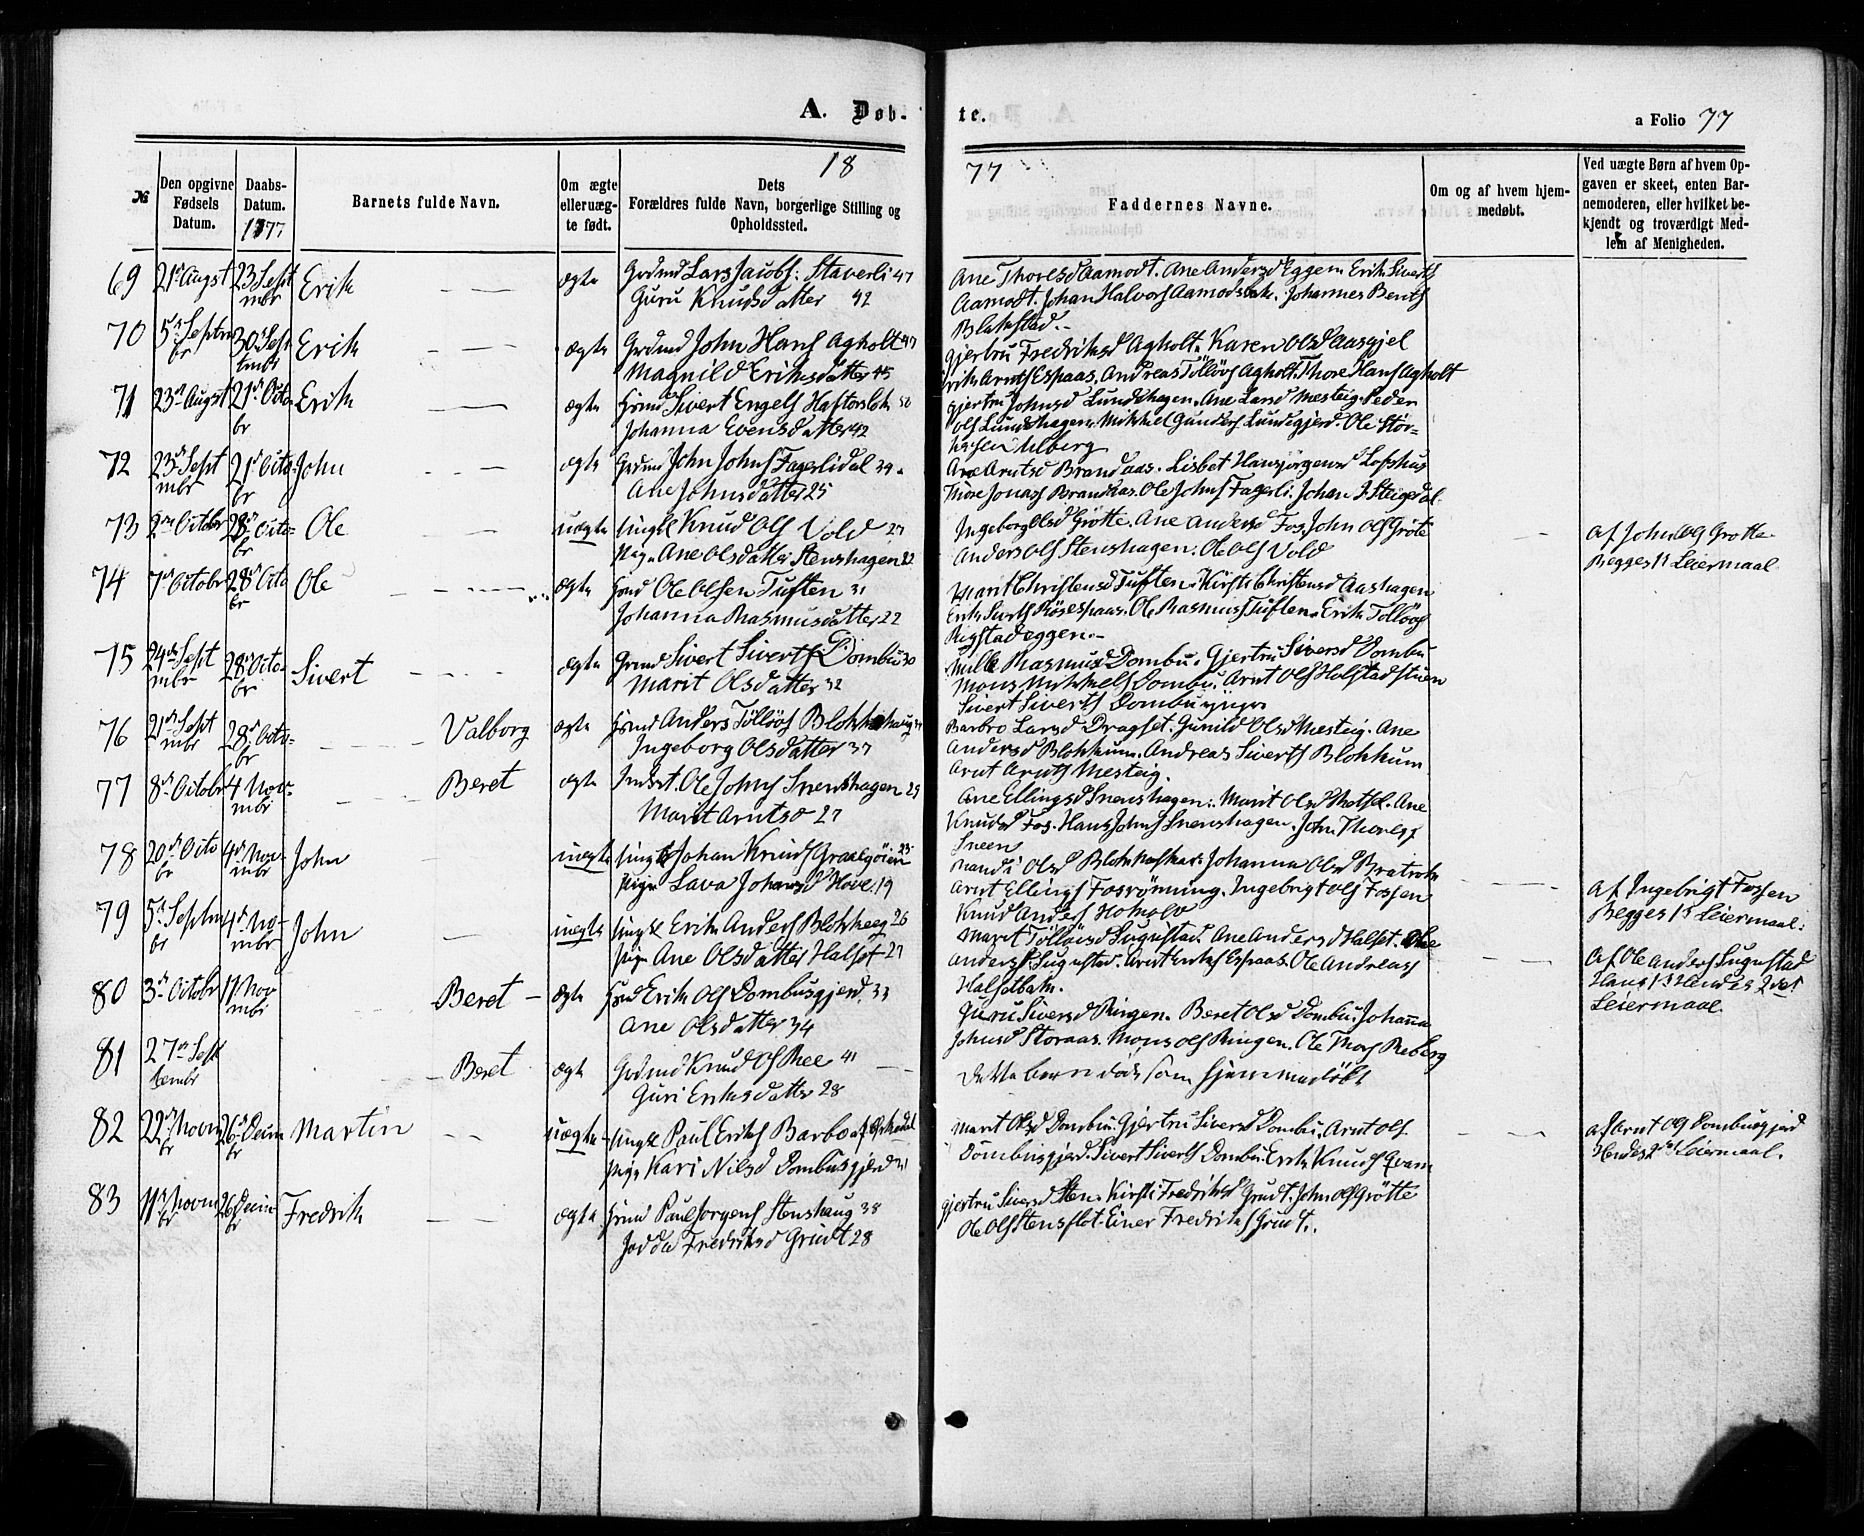 A. Døb-
18
№
Den opgivne Fødsels Datum.
Daabs-Datum. 1877
Barnets fulde Navn.
Om ægte eller uægte født.
Dets Forældres fulde Navn, borgerlige Stilling og Opholdssted.
69 21de Augst 23 Septmbr Erik ægte Grdmd Lars Jacobs. Staverli 47
Guru Knudsdatter 42
70 5te Septmbr 30 Septmbr Erik ægte Grdmd John Hans Agholt 47
Magnild Eriksdatter 45
71 23de Augst 21de Octobr Erik ægte Sivert Engels
Johanna Evensdatter 42
72 23de Septmbr 21de Octobr John ægte Grdmd John Johns Fagerlidal 34
Ane Johnsdatter 25
73 2den Octobr 28de Octobr Ole uægte Ungkl Knud Ols Vold 27
Pige Ane Olsdatter Stenshagen 22
74 7de Octobr 28de Octobr Ole ægte Ole Olsen Tuften 31
Johanna Rasmusdatter 22
75 24de Septmbr 28de Octobr Sivert ægte Grdmd Sivert Siverts Dombu 30
Marit Olsdatter 32
76 21de Septmbr 28de Octobr Valborg ægte Anders Tølløvs
Ingeborg Olsdatter 37
77 8de Octobr 4 Novmbr Beret ægte Indst. Ole Johns Snenshagen 29
Marit Arntsd 27
78 20de Octobr 4de Novmbr John uægte Ungkl Johan Knuds 25
Pige Lava Johansd Hove 19
79 5te Septmbr 4de Novmbr John uægte Ungkl Erik Anders 26
Pige Ane Olsdatter Halset 27
80 3de Octobr 11 Novmbr Beret ægte Erik Ols Dombusgjerd 33
Ane Olsdatter 34
81 27de Septembr Beret ægte Grdmd Knud Ols Ree 41
Guri Eriksdatter 28
82 22de Novmbr 26de Decmbr Martin uægte Ungkl Paul Eriks Barbo
Pige Kari Nilsd Dombusgjerd 31
83 11te Novmbr 26de Decmbr Fredrik ægte Paul Jorgens Stenshaug 38
Fredriksd Grudt 28
te.
a Folio 77
77
Faddernes Navne.
Om og af hvem hjemmedøbt.
Ved uægte Børn af hvem Opgaven er skeet, enten Barnemoderen, eller hvilket bekjendt og troværdigt Medlem af Menigheden.
Ane Thoresd Aamodt. Ane Andersd Eggen. Erik Siverts
Aamodt. Johan Halvors Aamodsbak. Johannes Bents
Blokstad.
Gjertru Fredriksd Agholt. Karen Olsd Aasgjel
Erik Arnts Espaas. Andreas Tølløvs Agholt. Thore Hans Agholt
Gjertru Johnsd Lundshagen. Ane Larsd Mesteig. Peder
Ols Lundshagen. Mikkel Gunders Lundsgjerd. Ole
Ulberg
Ane Arntsd Brandaas. Lisbet Hansjørgensd Lofshus
Thore Jonas Brandaas. Ole Johns Fagerli. Johan J. Steigedal
Ingeborg Olsd Grøtte. Ane Andersd Fos. John Ols Grøte
Anders Ols Stenshagen. Ole Ols Vold
af John Ols Grøtte
Begges 1st Leiermaal
Marit Christensd Tuften. Kirsti Christensd Aashagen
Erik Siverts Røsespaas. Ole Rasmus Tuften. Erik Tølløvs
Rigstadeggen.
Mille Rasmusd Dombu. Gjertru Siversd Dombu
Mons Mikkels Dombu. Arnt Ols Holstadstuen
Sivert Siverts Dombu yngre
Barbro Larsd Dragset. Gunild Olsd Mesteig. Ane
Andersd Blokkum. Andreas Siverts Blokkum
Arnt Arnts Mesteig.
Ane Ellingsd Snenshagen. Marit Olsd . Ane
Knudsd Fos. Hans Johns Snenshagen. John Thores
Sneen
Olsd . Johanna Olsd
Arnt Ellings Fosrønning. Ingebrigt Ols Fossen
Knud Anders
af Ingebrigt Fossen
Begges 1st Leiermaal.
Marit Tølløvsd Sugustad. Ane Andersd Halset. Ole
Anders Sugustad. Arnt Eriks Espaas. Ole Andreas
Halsetbak.
af Ole Anders Sugustad
Hans 1st Hendes 2det
Leiermaal.
Guru Siversd Ringen. Beret Olsd Dombu. Johanna
Johnsd Storaas. Mons Ols Ringen. Ole Thors Reberg
Dette barn døde som hjemmedøbt
Marit Olsd Dombu. Gjertru Siversd Dombu. Arnt Ols
Dombusgjerd. Sivert Siverts Dombu. Erik Knuds Qvam
af Arnt Ols Dombusgjerd
Hendes 2det Leiermaal.
Gjertru Siversd Sten. Kirsti Fredriksd Grudt. John Ols Grøtte
Ole Ols Stensflot. Einer Fredriks Grudt.